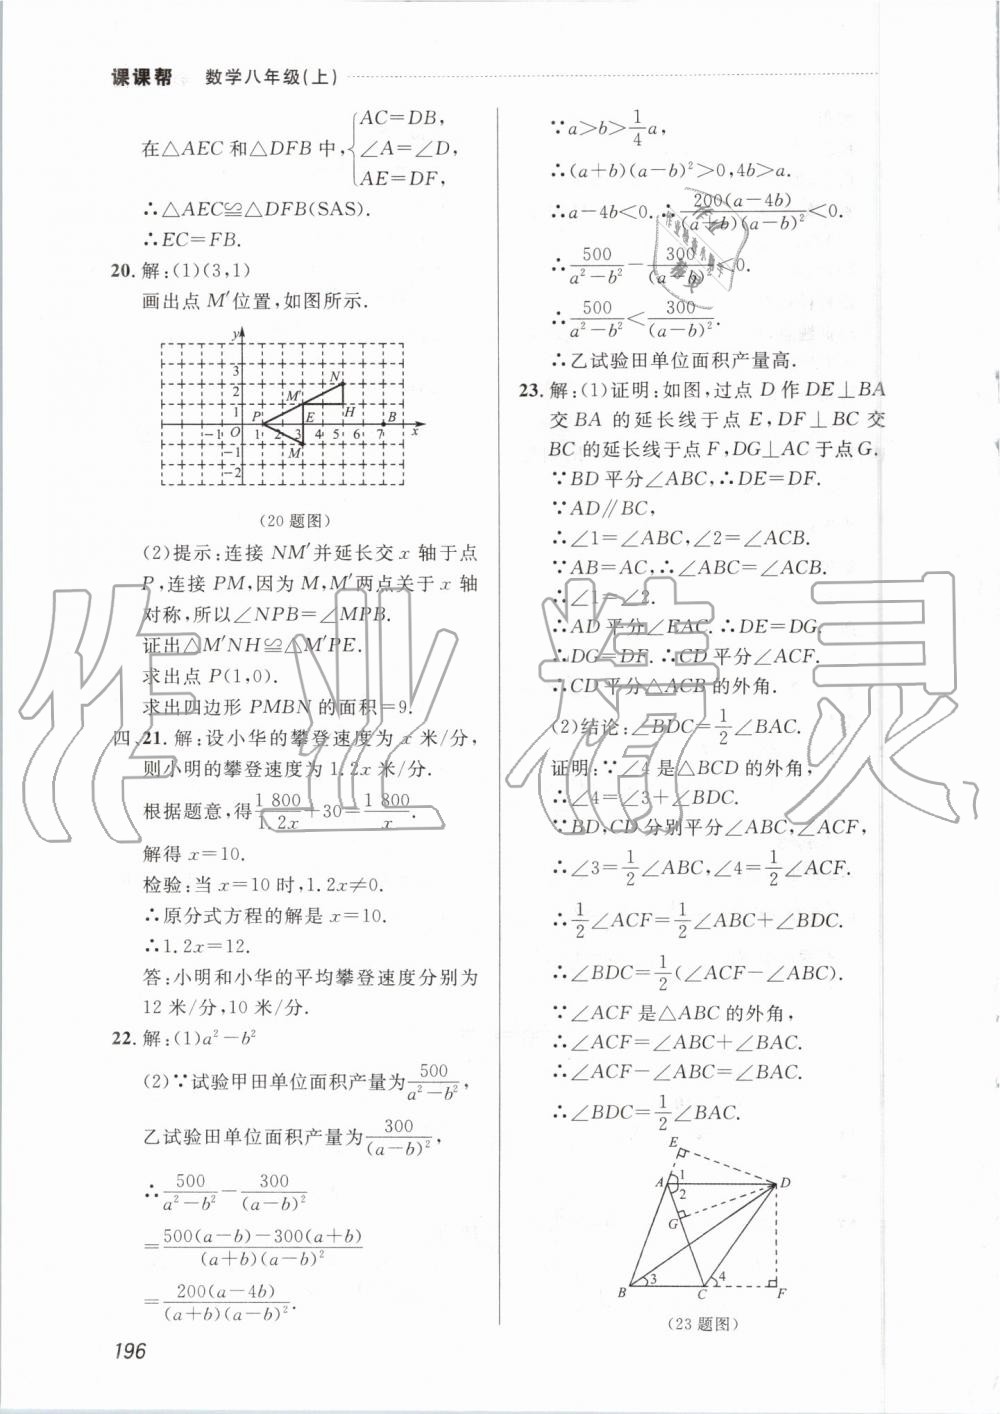 课课帮 数学八年级(上)
在△AEC和△DFB中,{AC=DB,
∠A=∠D,
AE=DF,
∴△AEC≌△DFB(SAS).
∴EC=FB.
20.解:(1)(3,1)
画出点M′位置,如图所示.
y
3
2
1
-1 O 1 2 3 4 5 6 7 x
-1
-2
P M′ N E H B M
(20题图)
(2)提示:连接NM′并延长交x轴于点
P,连接PM,因为M,M′两点关于x轴
对称,所以∠NPB=∠MPB.
证出△M′NH≌△M′PE.
求出点P(1,0).
求出四边形PMBN的面积=9.
四、21.解:设小华的攀登速度为x米/分,
则小明的攀登速度为1.2x米/分.
根据题意,得1 800/1.2x+30=1 800/x.
解得x=10.
检验:当x=10时,1.2x≠0.
∴原分式方程的解是x=10.
∴1.2x=12.
答:小明和小华的平均攀登速度分别为
12米/分,10米/分.
22.解:(1)a²-b²
(2)∵试验甲田单位面积产量为500/(a²-b²),
乙试验田单位面积产量为300/(a-b)²,
∴500/(a²-b²)-300/(a-b)²
=[500(a-b)-300(a+b)]/[(a+b)(a-b)²]
=200(a-4b)/[(a+b)(a-b)²].
∵a>b>1/4a,
∴(a+b)(a-b)²>0,4b>a.
∴a-4b<0.∴200(a-4b)/[(a+b)(a-b)²]<0.
∴500/(a²-b²)-300/(a-b)²<0.
∴500/(a²-b²)<300/(a-b)².
∴乙试验田单位面积产量高.
23.解:(1)证明:如图,过点D作DE⊥BA
交BA的延长线于点E,DF⊥BC交
BC的延长线于点F,DG⊥AC于点G.
∵BD平分∠ABC,∴DE=DF.
∵AD∥BC,
∴∠1=∠ABC,∠2=∠ACB.
∵AB=AC,∴∠ABC=∠ACB.
∴∠1=∠2.
∴AD平分∠EAC.∴DE=DG.
∴DG=DF.∴CD平分∠ACF.
∴CD平分△ACB的外角.
(2)结论:∠BDC=1/2∠BAC.
证明:∵∠4是△BCD的外角,
∴∠4=∠3+∠BDC.
∵BD,CD分别平分∠ABC,∠ACF,
∴∠3=1/2∠ABC,∠4=1/2∠ACF.
∴1/2∠ACF=1/2∠ABC+∠BDC.
∴∠BDC=1/2(∠ACF-∠ABC).
∵∠ACF是△ABC的外角,
∴∠ACF=∠ABC+∠BAC.
∴∠ACF-∠ABC=∠BAC.
∴∠BDC=1/2∠BAC.
E
A 1 D
2
G
B 3 C 4 F
(23题图)
196
作业精灵